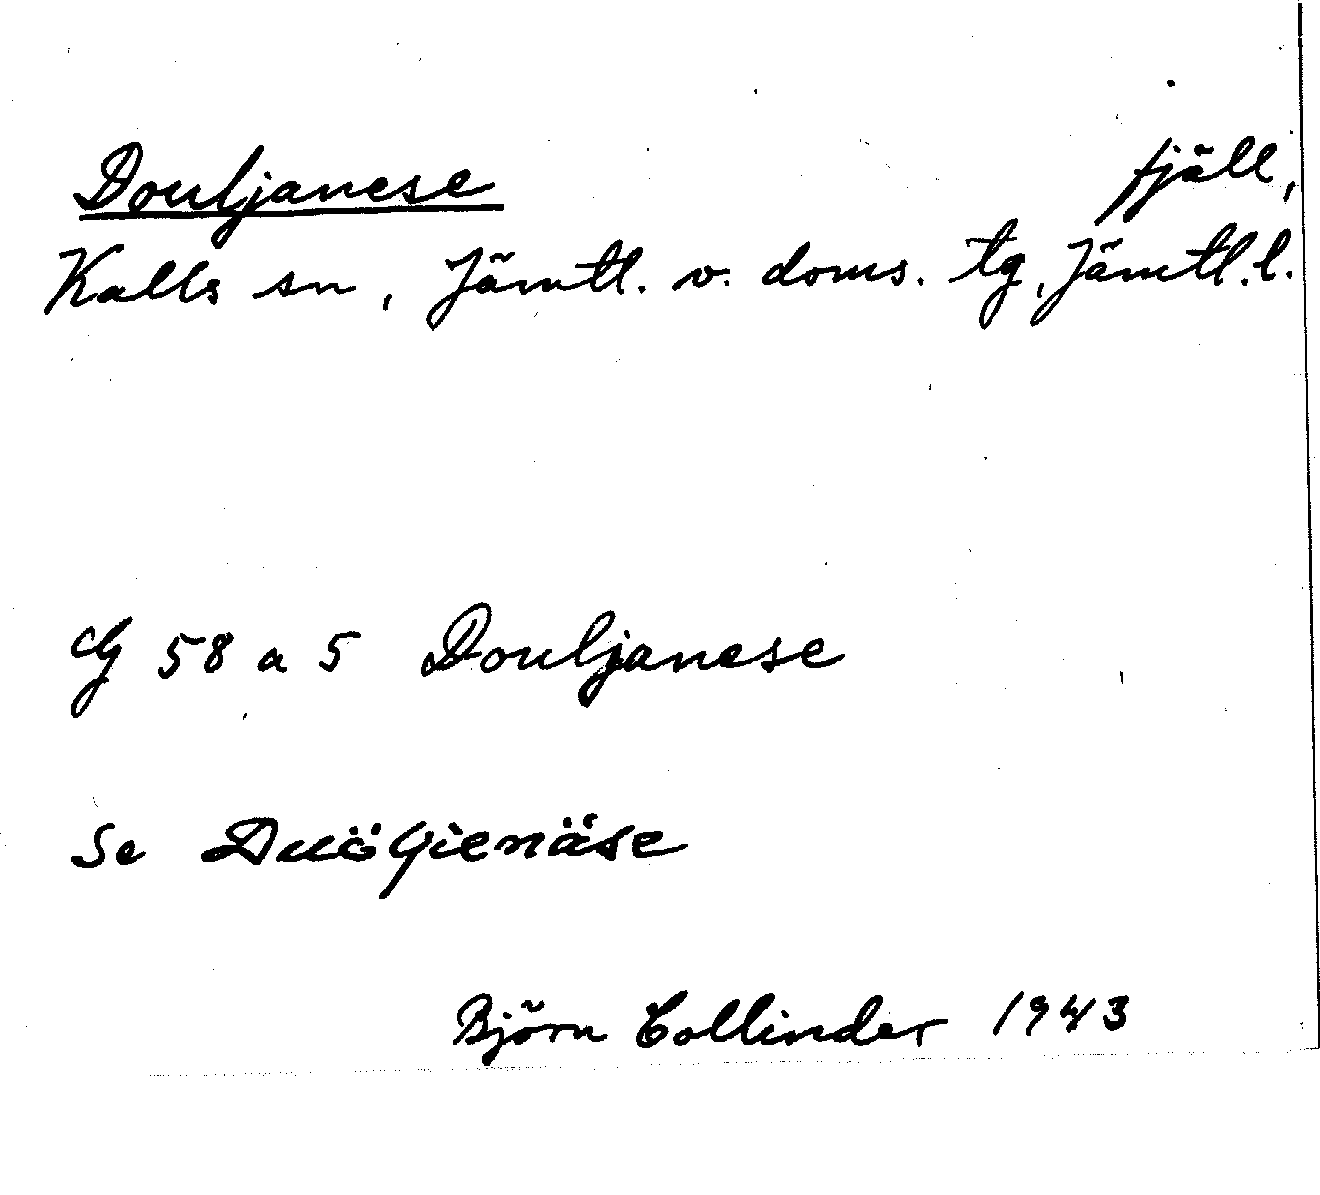 Douljanese fjäll,
Kalls sn, Jämtl. v. doms. tg, Jämtl.l.
G 58 a 5 Douljanese
Se
Björn Collinder 1943